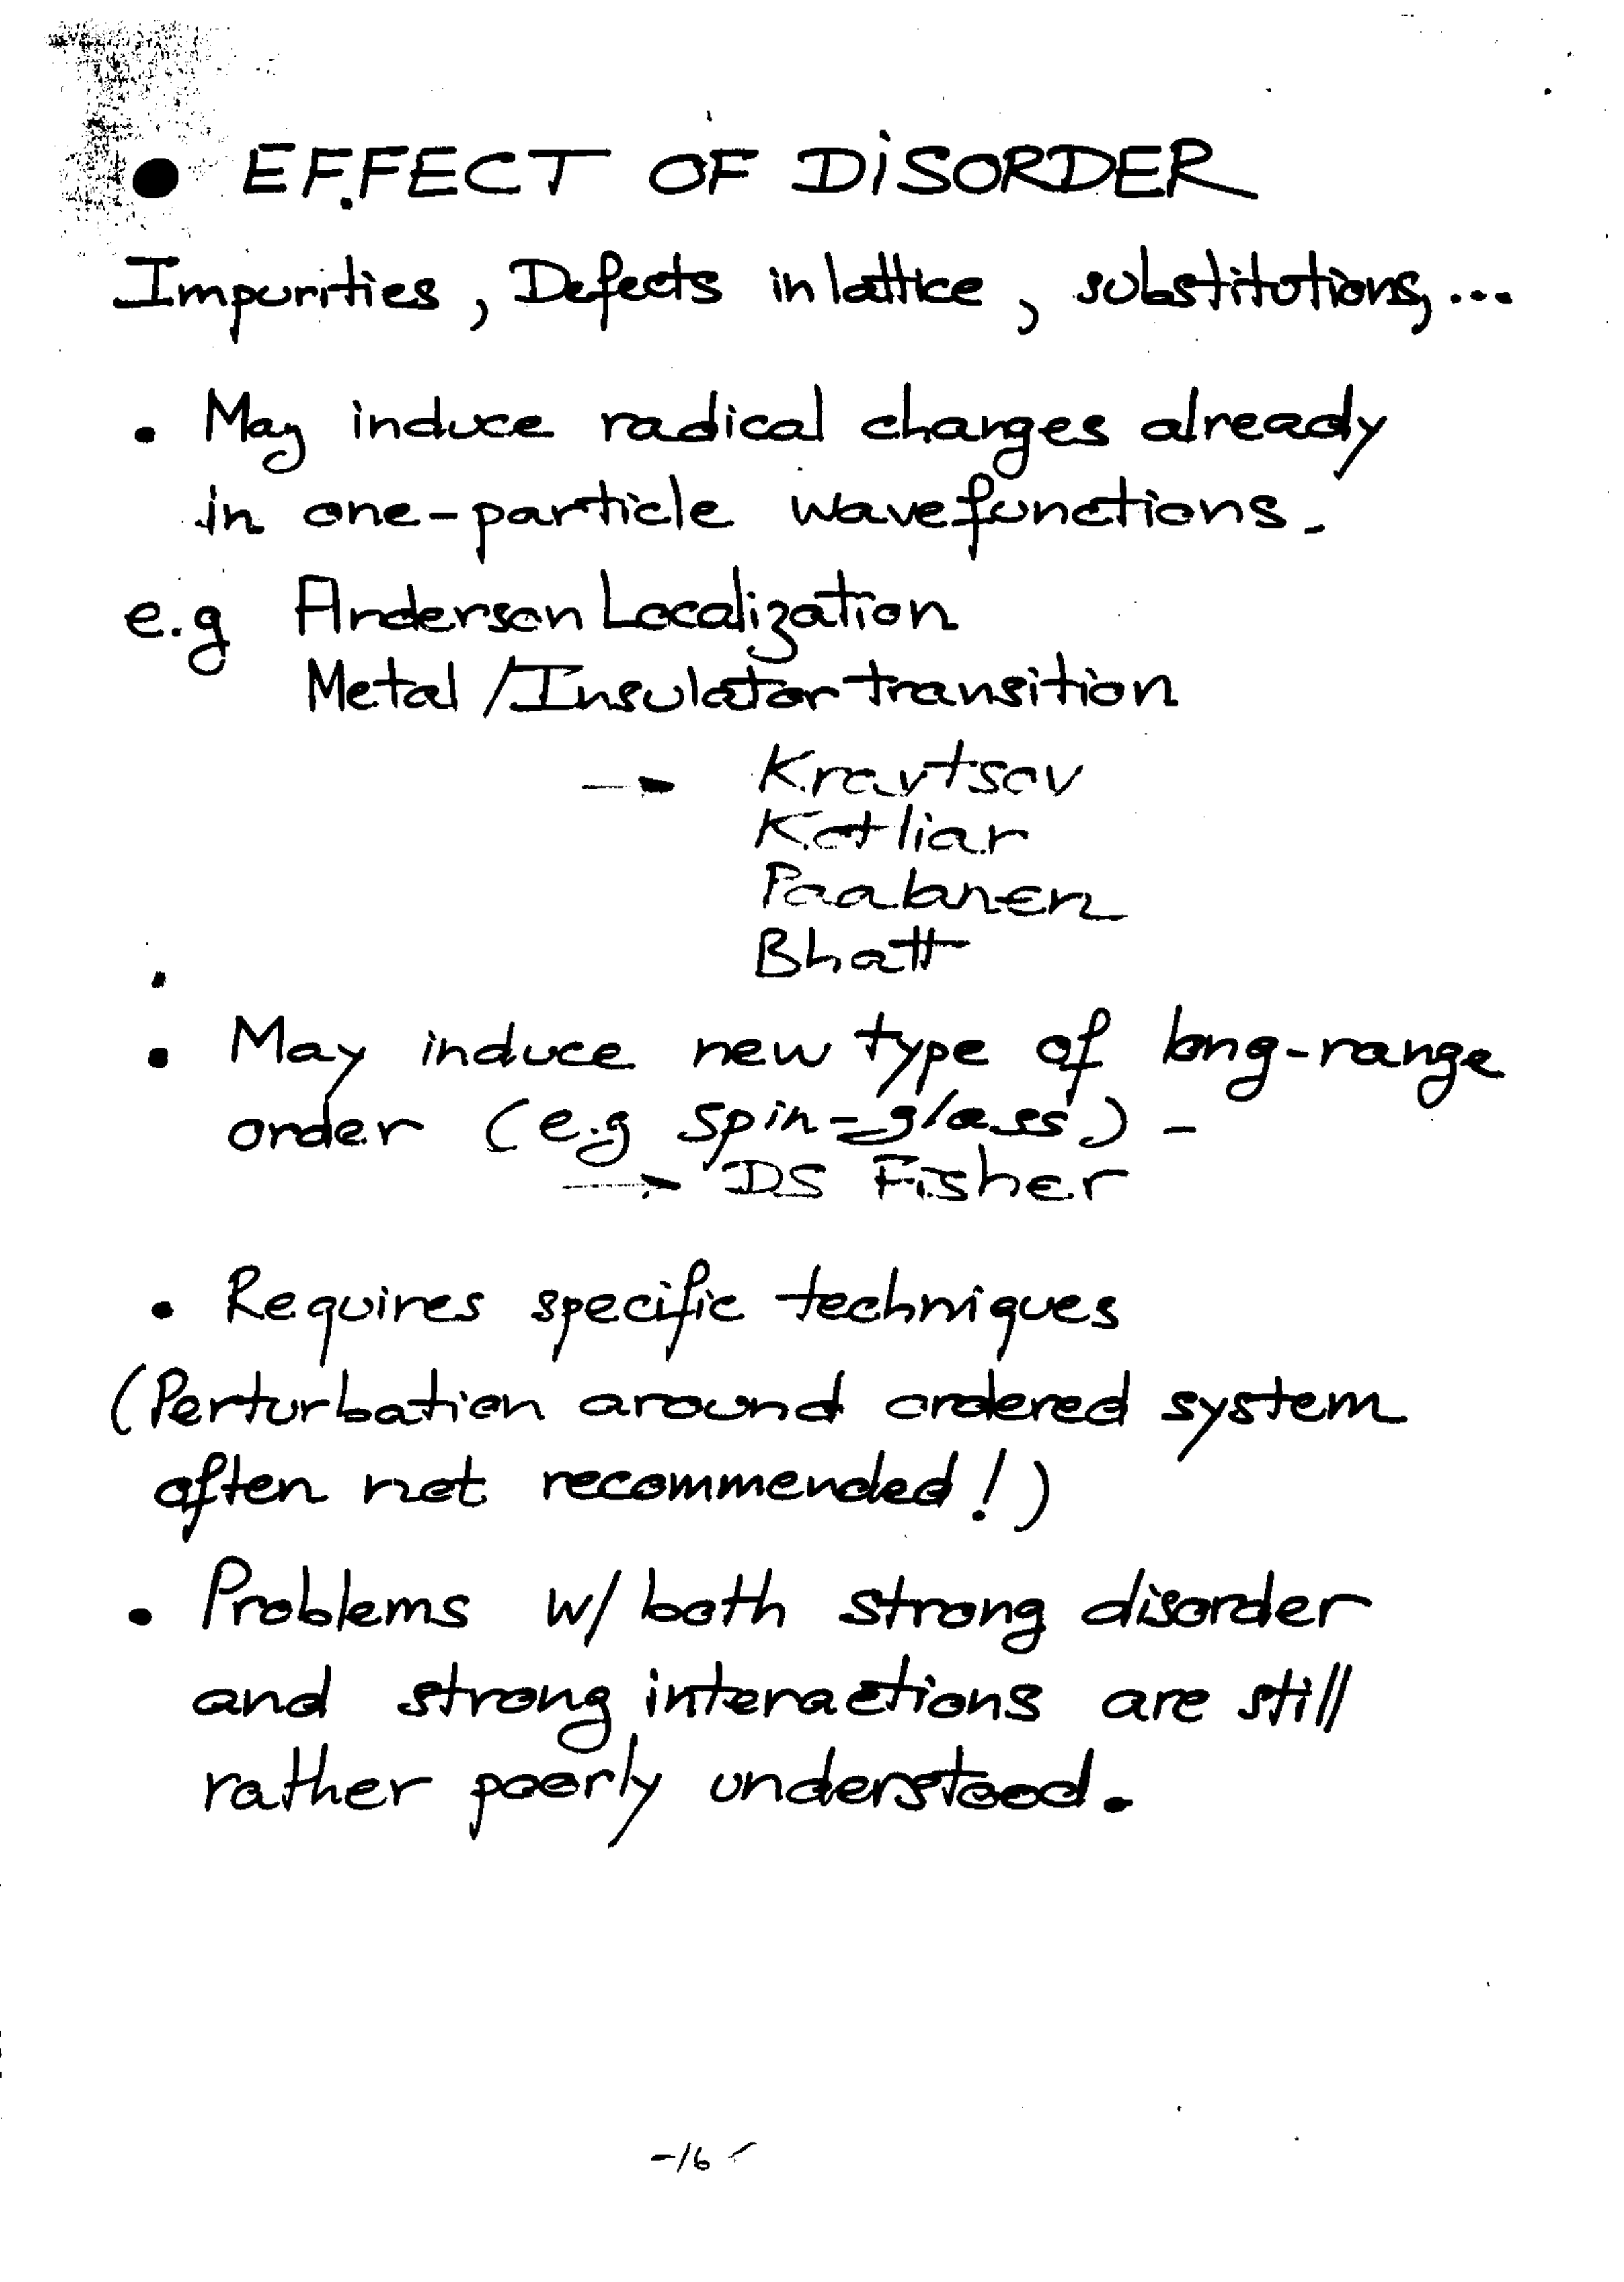 • EFFECT OF DISORDER
Impurities, Defects in lattice, substitutions, ...
• May induce radical changes already
in one-particle wavefunctions.
e.g Anderson Localization
Metal/Insulator transition
→ Kravtsov
Kotliar
Paalanen
Bhatt
• May induce new type of long-range
order (e.g spin-glass) -
→ DS Fisher
• Requires specific techniques
(Perturbation around ordered system
often not recommended!)
• Problems w/ both strong disorder
and strong interactions are still
rather poorly understood.
-16-